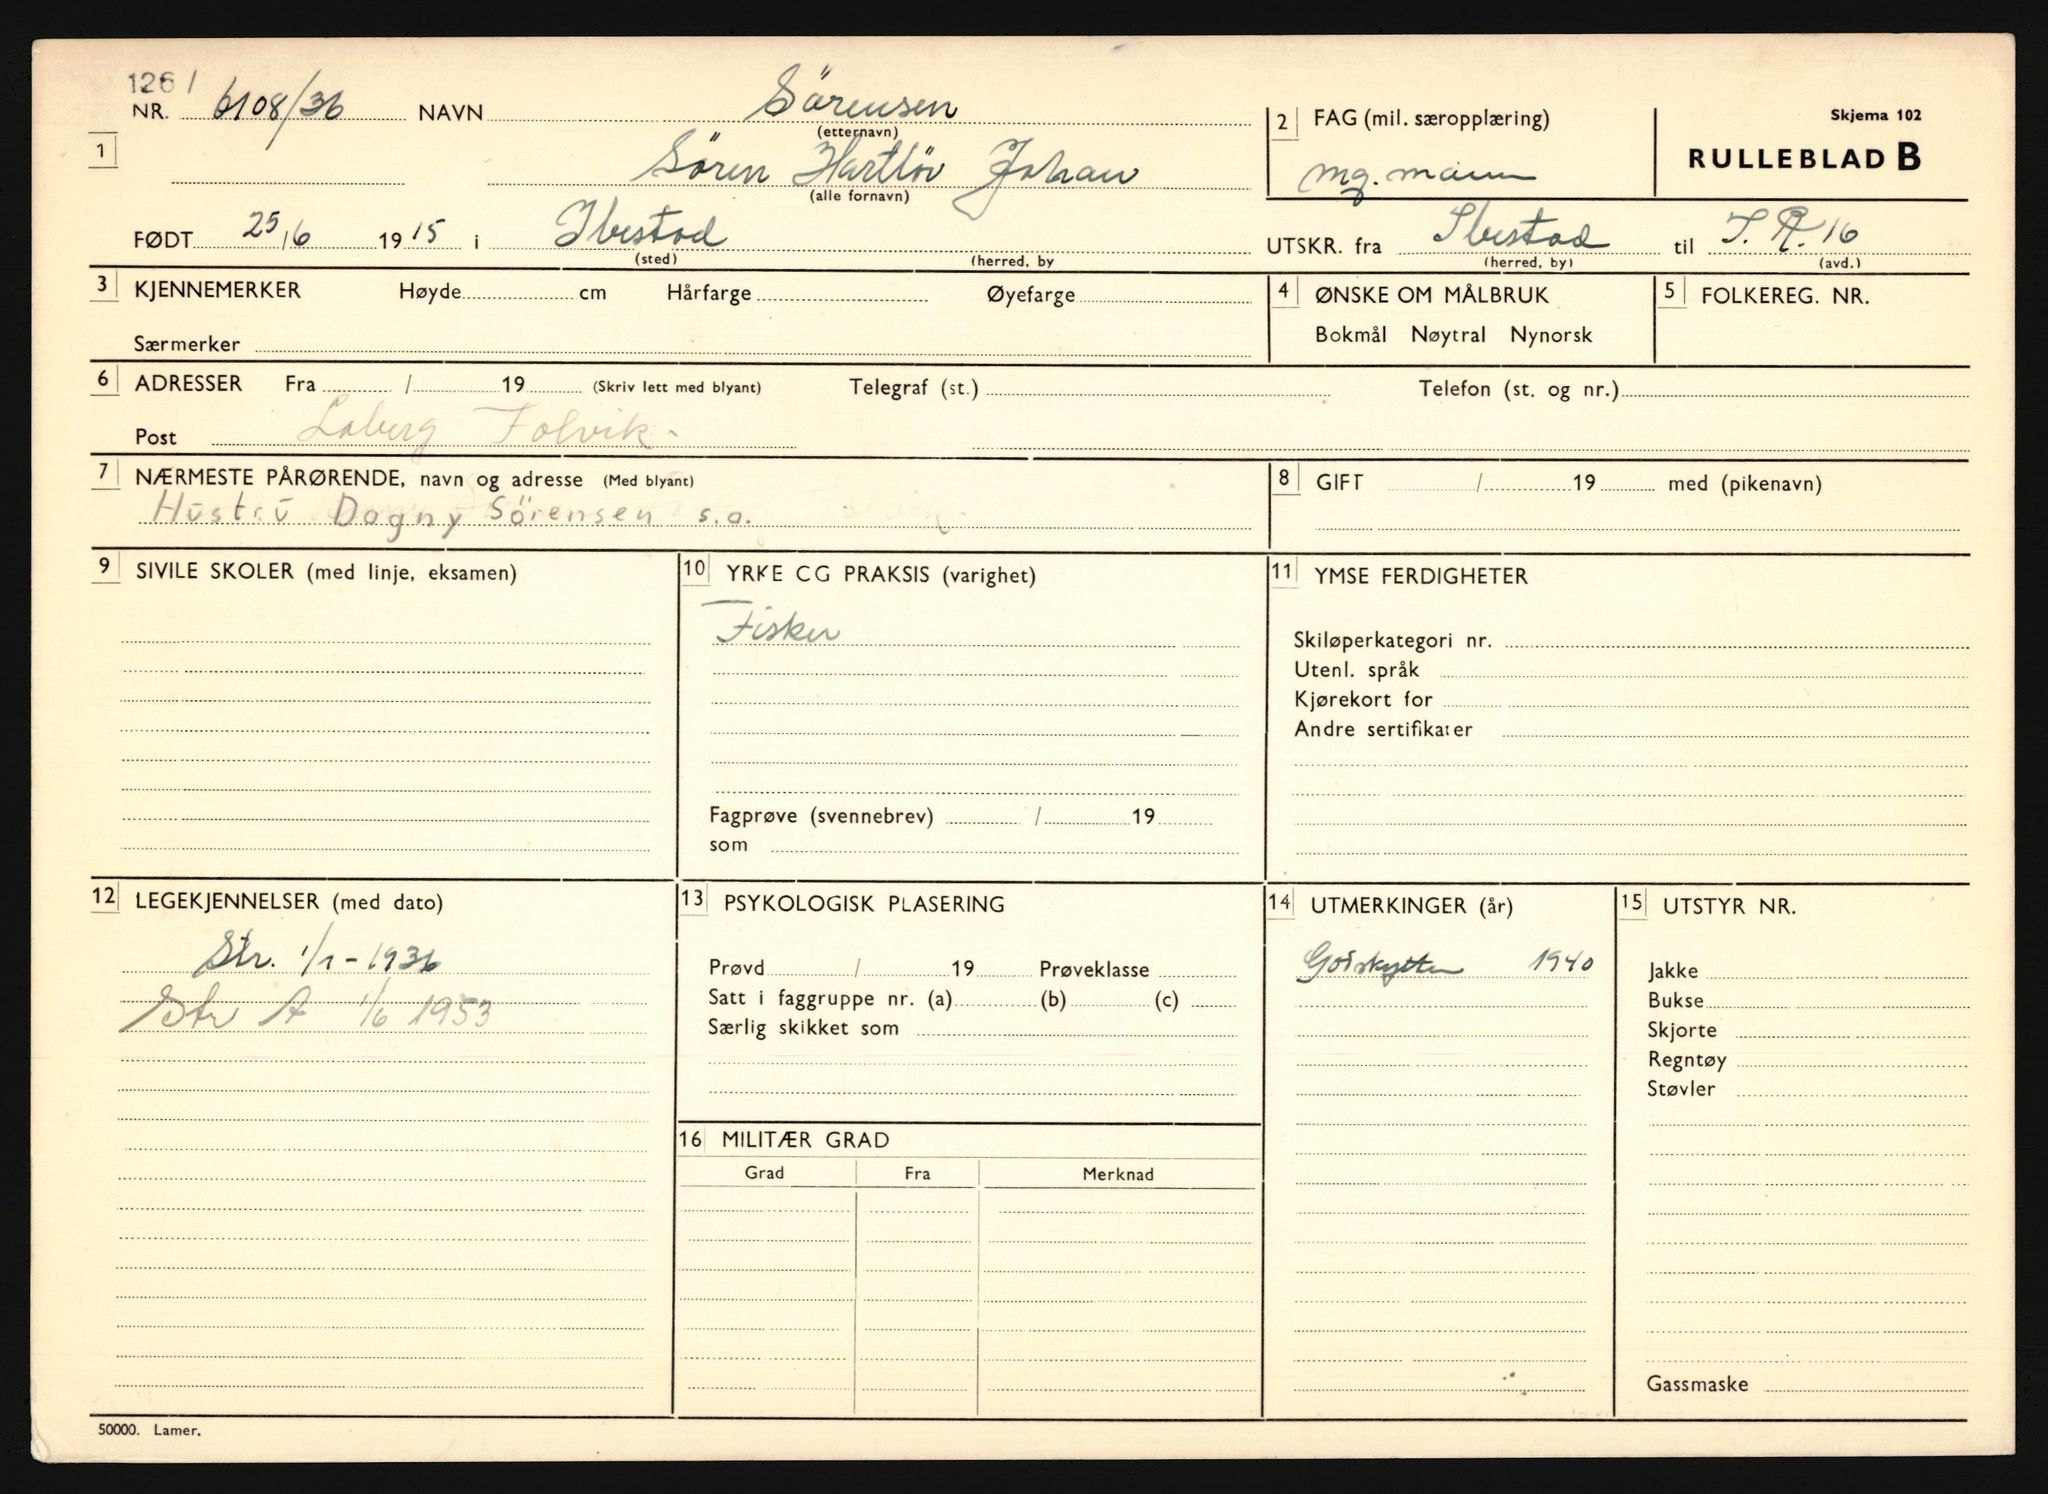 1261
NR. 6108/36 NAVN Sörensen
(etternavn)
1
Sören Hartlöv Johan
(alle fornavn)
2 FAG (mil. særopplæring)
Mg. mann
Skjema 102
RULLEBLAD B
FØDT 25/6 1915 i Ibestad
(sted) (herred, by
UTSKR. fra Ibestad til I.R. 16
(herred, by) (avd.)
3 KJENNEMERKER Høyde cm Hårfarge Øyefarge
Særmerker
4 ØNSKE OM MÅLBRUK
Bokmål Nøytral Nynorsk
5 FOLKEREG. NR.
6 ADRESSER Fra / 19 (Skriv lett med blyant) Telegraf (st.) Telefon (st. og nr.)
Post Laberg Folvik.
7 NÆRMESTE PÅRØRENDE, navn og adresse (Med blyant)
Hustru Dagny Sörensen s.a.
8 GIFT / 19 med (pikenavn)
9 SIVILE SKOLER (med linje, eksamen)
10 YRKE OG PRAKSIS (varighet)
Fisker
Fagprøve (svennebrev) / 19
som
11 YMSE FERDIGHETER
Skiløperkategori nr.
Utenl. språk
Kjørekort for
Andre sertifikater
12 LEGEKJENNELSER (med dato)
Str. 1/1-1936
Str A 1/6 1953
13 PSYKOLOGISK PLASERING
Prøvd / 19 Prøveklasse
Satt i faggruppe nr. (a) (b) (c)
Særlig skikket som
14 UTMERKINGER (år)
Godskytter 1940
15 UTSTYR NR.
Jakke
Bukse
Skjorte
Regntøy
Støvler
Gassmaske
16 MILITÆR GRAD
Grad Fra Merknad
50000. Lamer.